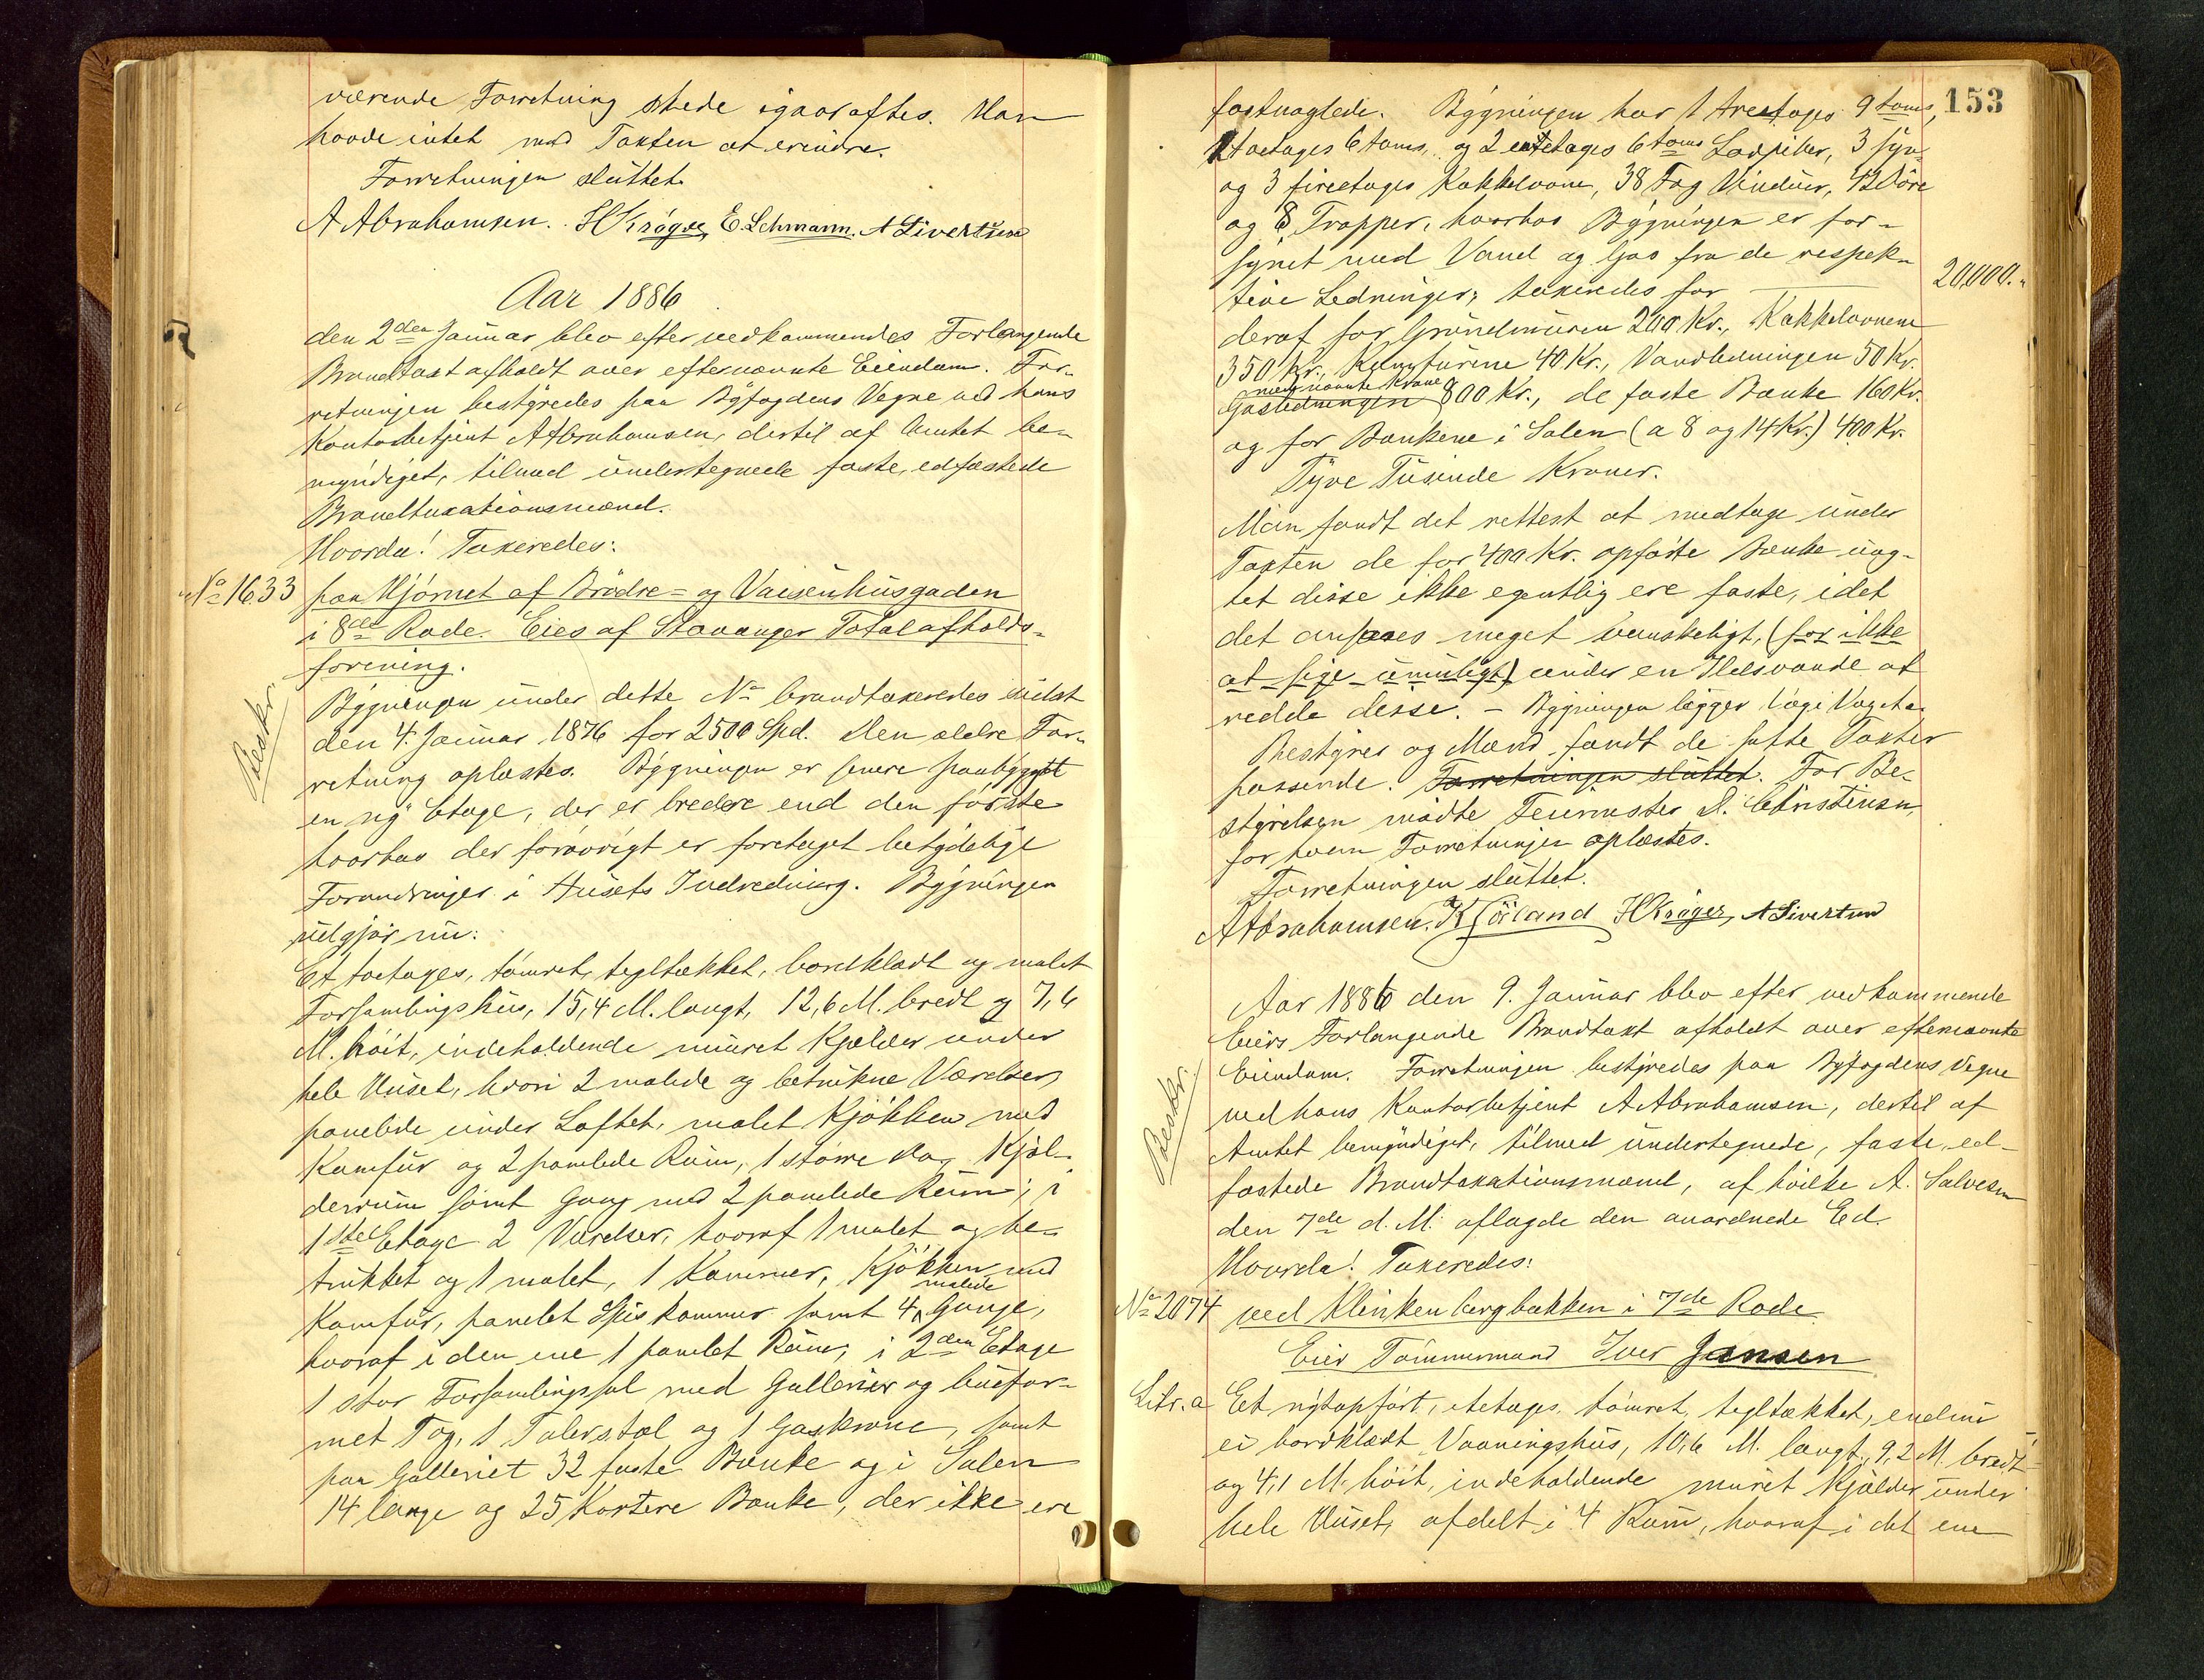 værende Forretning skede igaar aftes. Han
havde intet mod Taxten at erindre.
Forretningen sluttet.
A Abrahamsen. H Krøger, E. Lehmann. A Sivertsen
Aar 1886
den 2den Januar blev efter vedkommendes Forlangende
Brandtaxt afholdt over efternævnte Eiendom. For-
retningen bestyredes paa Byfogdens Vegne ved hans
Kontorbetjent A Abrahamsen, dertil af Amtet be-
myndiget, tilmed undertegnede faste, edfæstede
Brandtaxationsmænd.
Hvorda! Taxeredes:
No 1633 paa Hjørnet af Brødre- og Vaisenhusgaden
i 8de Rode. Eies af Stavanger Totalafholds-
forening.
Beskr.
Bygningen under dette No brandtaxeredes sidst
den 4. Januar 1876 for 2500 Spd. Den ældre For-
retning oplæstes. Bygningen er senere paabygget
en ny Etage, der er bredere end den første
hvorhos der forøvrigt er foretaget betydelige
Forandringer i Husets Indredning. Bygningen
udgjør nu:
Et toetages, tømret, tegltækket, bordklædt og malet
Forsamlingshus, 15,4 M. langt, 12,6 M. bredt og 7,6
M. høit, indeholdende muret Kjælder under
hele Huset, hvori 2 malede og betrukne Værelser,
panelede under Loftet, malet Kjøkken med
Komfur og 2 panelede Rum, 1 større do, 1 Kjæl-
derrum samt Gang med 2 panelede Rum; i
1ste Etage 2 Værelser, hvoraf 1 malet og be-
trukket og 1 malet, 1 Kammer, Kjøkken med
Komfur, panelet Spiskammer samt 4 malede Gange,
hvoraf i den ene 1 panelet Rum; i 2den Etage
1 stor Forsamlingssal med Gallerier og buefor-
met Tag, 1 Talerstol og 1 Gaskrone, samt
paa Galleriet 32 faste Bænke og i Salen
14 lange og 25 Kortere Bænke, der ikke ere
153
fastnaglede. Bygningen har 1 treetages 9 toms,
1 toetages 6 toms, og 2 enetages 6 toms Lodpiber, 3 fyr-
og 3 fireetages Kakkelovne, 38 Fag Vinduer, 42 Døre
og 8 Trapper, hvorhos Bygningen er for-
synet med Vand og Gas fra de respek-
tive Ledninger; taxeredes for 20,000.-
deraf for Grundmuren 200 Kr., Kakkelovnene
350 Kr., Komfurene 40 Kr., Vandledningen 50 Kr.
Gasledningen med nævnte Krone 800 Kr., de faste Bænke 160 Kr.
og for Bænkene i Salen (a 8 og 14 Kr.) 400 Kr.
Tyve Tusinde Kroner.
Man fandt det rettest at medtage under
Taxten de for 400 Kr. opførte Bænke uag-
tet disse ikke egentlig ere faste, idet
det ansaaes meget vanskeligt, (for ikke
at sige umuligt) under en Ildsvaade at
redde disse. – Bygningen ligger i og i Vagt a.
Bestyrer og Mænd fandt de satte Taxter
passende. Forretningen sluttet. For Be-
styrelsen mødte Feiermester A. Christensen,
for hvem Forretningen oplæstes.
Forretningen sluttet.
A Abrahamsen. H Krøger, A Sivertsen
Aar 1886 den 9. Januar blev efter vedkommende
Eiers Forlangende Brandtaxt afholdt over efternævnte
Eiendom. Forretningen bestyredes paa Byfogdens Vegne
ved hans Kontorbetjent A Abrahamsen, dertil af
Amtet bemyndiget, tilmed undertegnede, faste, ed-
fæstede Brandtaxationsmænd, af hvilke A. Salvesen
den 7de d. M. aflagde den anordnede Ed.
Hvorda! Taxeredes:
Beskr.
No 2074 ved Klinkenbergbækken i 7de Rode
Eier Tømmermand Iver Jansen
Litr. a Et nytopført, etetages, tømret, tegltækket, endnu
ei bordklædt Vaaningshus, 10,6 M. langt, 9,2 M. bredt
og 4,1 M. høit, indeholdende muret Kjælder under
hele Huset, afdelt i 4 Rum, hvoraf i det ene